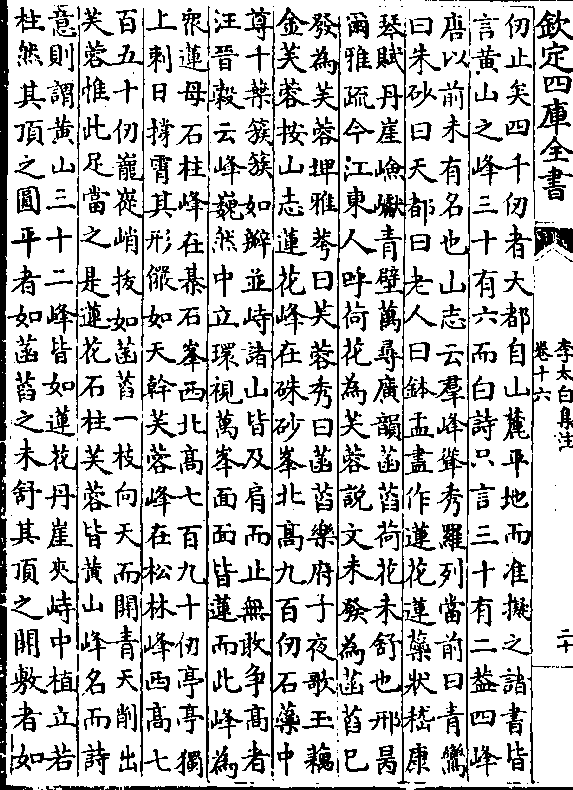 欽定四庫全書
李太白集注
卷十六
二十
仞止矣四千仞者大都自山麓平地而准擬之諸書皆
言黄山之峰三十有六而白詩只言三十有二葢四峰
唐以前未有名也山志云羣峰聳秀羅列當前曰青鸞
曰朱砂曰天都曰老人曰鉢盂盡作蓮花蓮蘂狀嵇康
琴賦丹崖嶮巇青壁萬尋廣韻菡萏荷花未舒也邢昺
爾雅疏今江東人呼荷花為芙蓉説文未發為菡萏已
發為芙蓉埤雅荂曰芙蓉秀曰菡萏樂府子夜歌玉藕
金芙蓉按山志蓮花峰在硃砂峯北高九百仞石蘂中
尊千葉簇簇如瓣並峙諸山皆及肩而止無敢争高者
汪晉穀云峰巍然中立環視萬峯面面皆蓮而此峰為
衆蓮母石柱峰在棊石峯西北高七百九十仞亭亭獨
上刺日撑霄其形儼如天幹芙蓉峰在松林峰西高七
百五十仞巃嵸峭拔如菡萏一枝向天而開青天削出
芙蓉惟此足當之是蓮花石柱芙蓉皆黄山峰名而詩
意則謂黄山三十二峰皆如蓮花丹崖夾峙中植立若
柱然其頂之圓平者如菡萏之未舒其頂之開敷者如